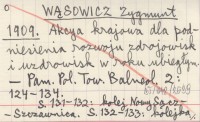 WĄSOWICZ Zygmunt
1909. Akcya krajowa dla pod-
niesienia rozwoju zdrojowisk
i uzdrowisk w roku ubiegłym.
— Pam. Pol. Tow. Balneol. 2:
124-134.
S. 131-132: kolej Nowy Sącz-
- Szczawnica. S. 132-133: kolejka